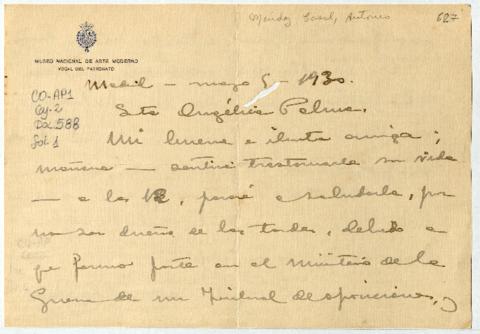 Mendez Casal, Antonio
627
MUSEO NACIONAL DE ARTE MODERNO
VOCAL DEL PATRONATO
CO-AP1
Cj. 2
Do. 588
Fol. 1
Madrid - mayo 5 - 1930.
Sta Angélica Palma.
Mi buena e ilustre amiga;
mañana - sentiré trastornarla su vida
- a las 12, pasaré a saludarla, por
no ser dueño de las tardes, debido a
que formo parte en el Ministerio de la
Guerra de un Tribunal de oposiciones, y